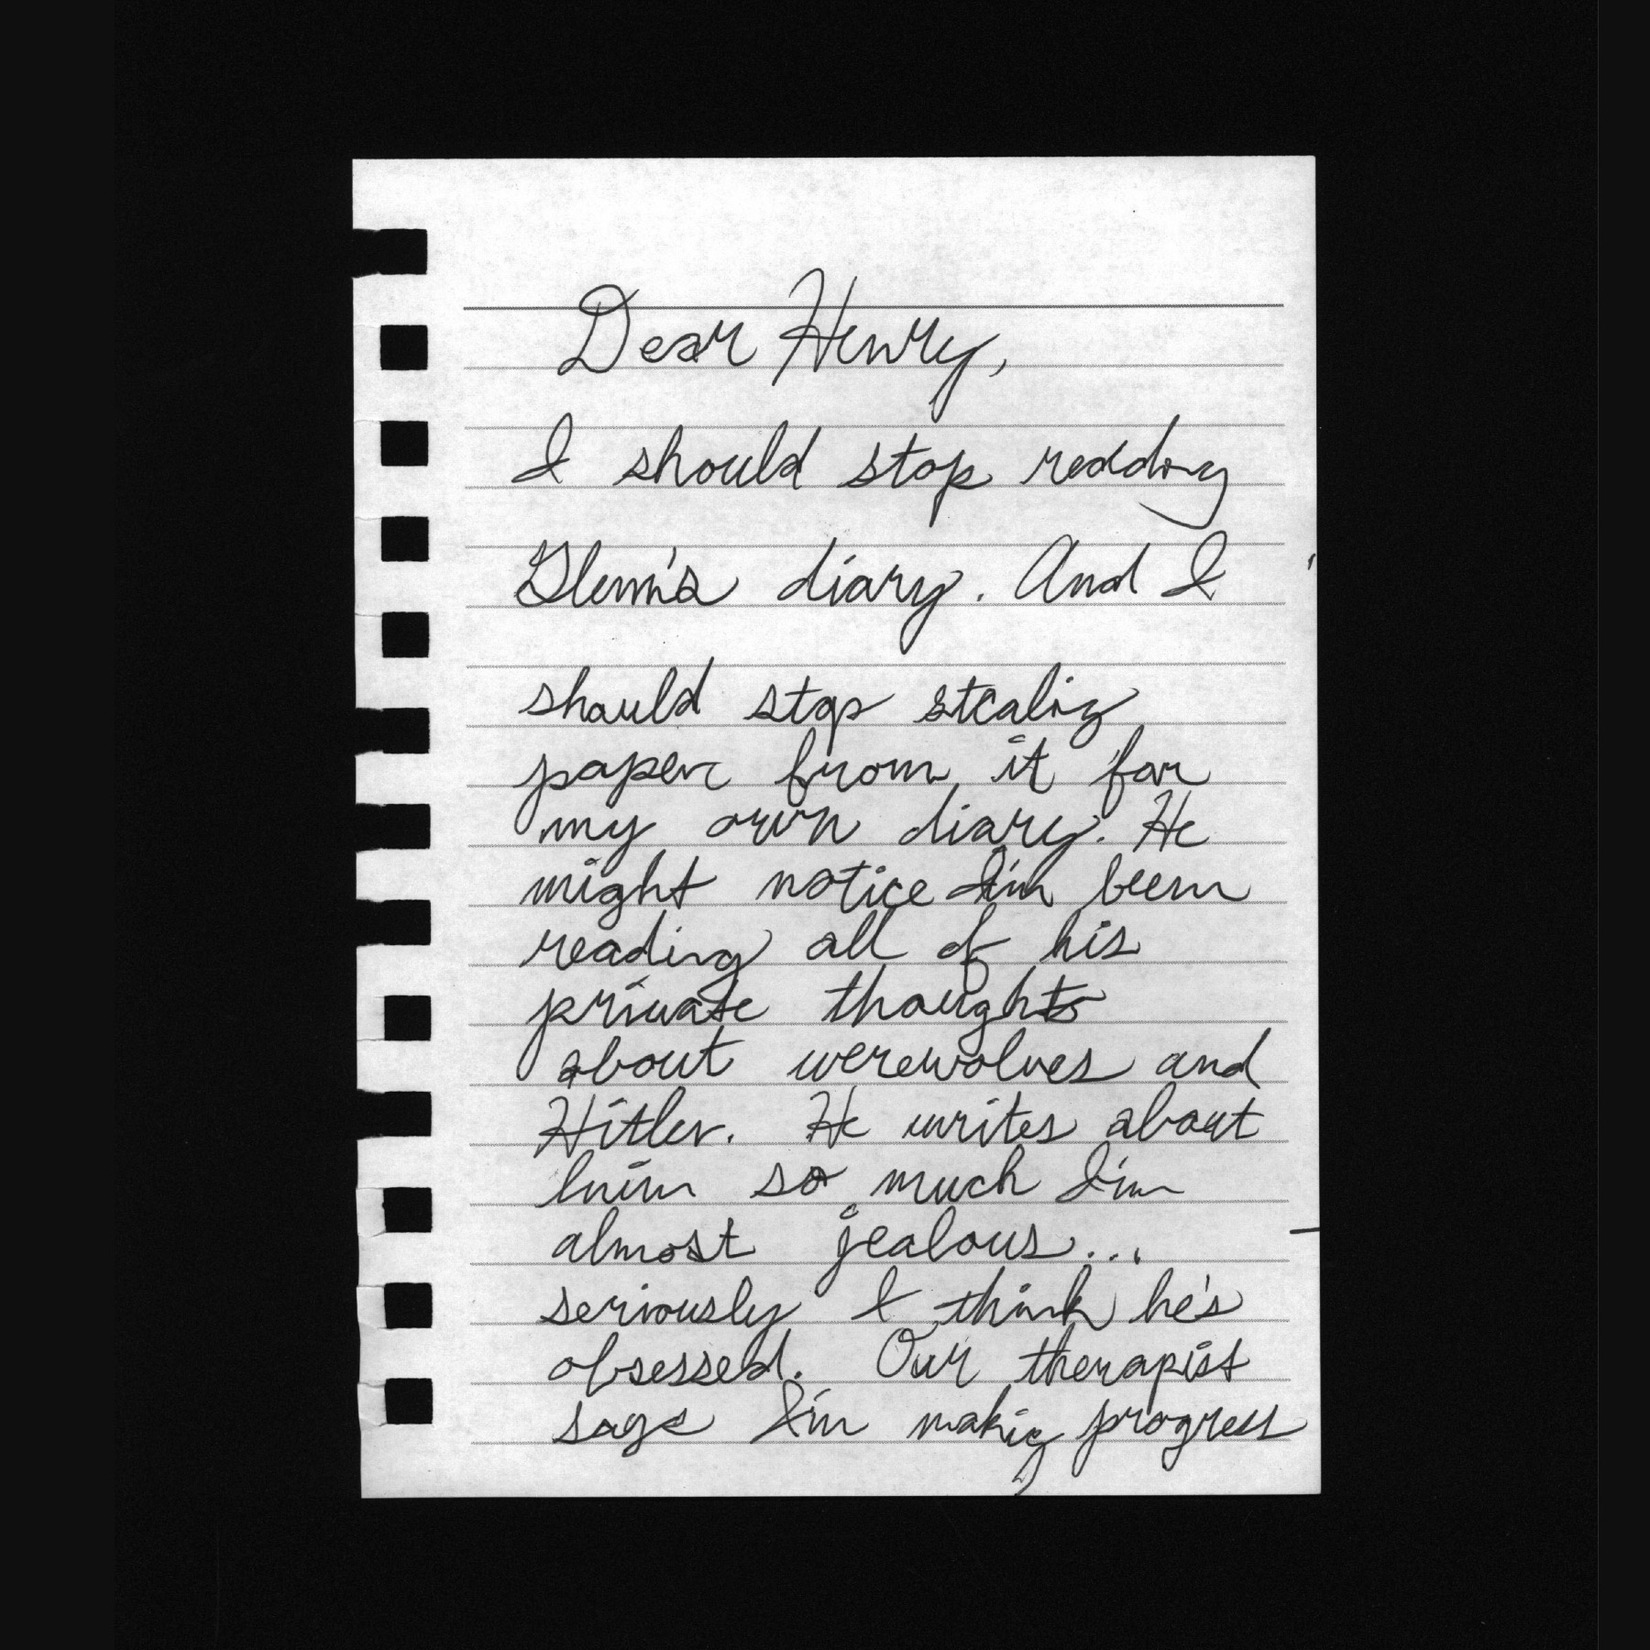 Dear Henry,
I should stop reading
Glenn's diary. And I
should stop stealing
paper from it for
my own diary. He
might notice I'm been
reading all of his
private thoughts
about werewolves and
Hitler. He writes about
him so much I'm
almost jealous...
seriously I think he's
obsessed. Our therapist
says I'm making progress